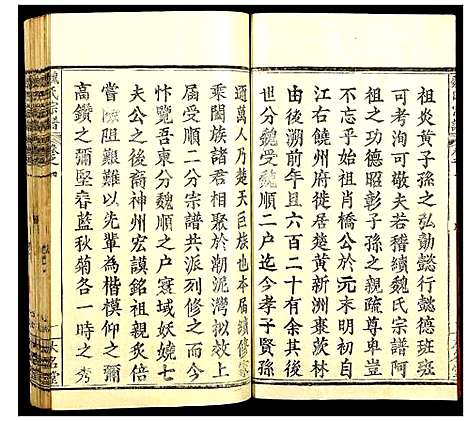 祖炎黄子孫之弘勛懿行懿德班班
可考洵可敬夫若稽續魏氏宗譜阿
祖之功德昭彰子孫之親疏尊卑自
不忘乎始祖於元末明初自
江右饒州府徙居楚黄新洲棗茨林
由後溯前年且六百二十有余其後
世分魏受魏順二户迄今孝子賢孫
逾萬人乃楚天巨族也本屆續修宗
秉闔族諸君相聚於潮泥灣拟效
居受順二分宗譜共派列修之而今
忭覽吾東分魏順之户寰域妖嬈七
夫公之後裔神州宏謨銘祖親炙倍
嘗險阻艱難以先輩為楷模仰之彌
高鑽之彌堅春藍秋菊各一時之秀
魏氏宗譜